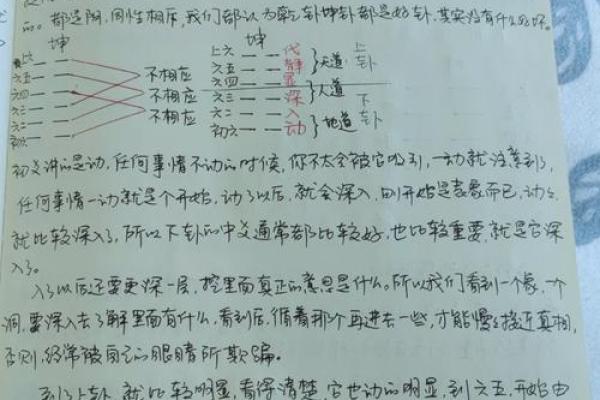 都是阴,同性相斥,我们都认为乾卦坤卦都是好卦,其实没有什么好坏。
坤 坤
上六 上六 代 上
六五 不相应 六五 静 天道 卦
六四 不相应 六四 置
六三 不相应 六三 深 人道 下
六二 六二 入
初六 初六 动 地道 卦
初爻讲的是动,任何事情不动的时候,你不太会被它吸引,一动就注意到了,
任何事情一动就是个开始,动了以后,就会深入,刚开始是表象而已,动之
就比较深入了,所以下卦的中爻通常都比较好,也比较重要,就是它深
入了。
入了以后还要更深一层,挖里面真正的意思是什么。所以我们看到一个象,一个
洞,要深入去了解里面有什么,看到后,循着那个再进去一些,才能慢慢接近真相,
否则,经常被自己的眼睛所欺骗。
到了上卦,就比较明显,看得清楚,它也动的明显,到六五,开始由